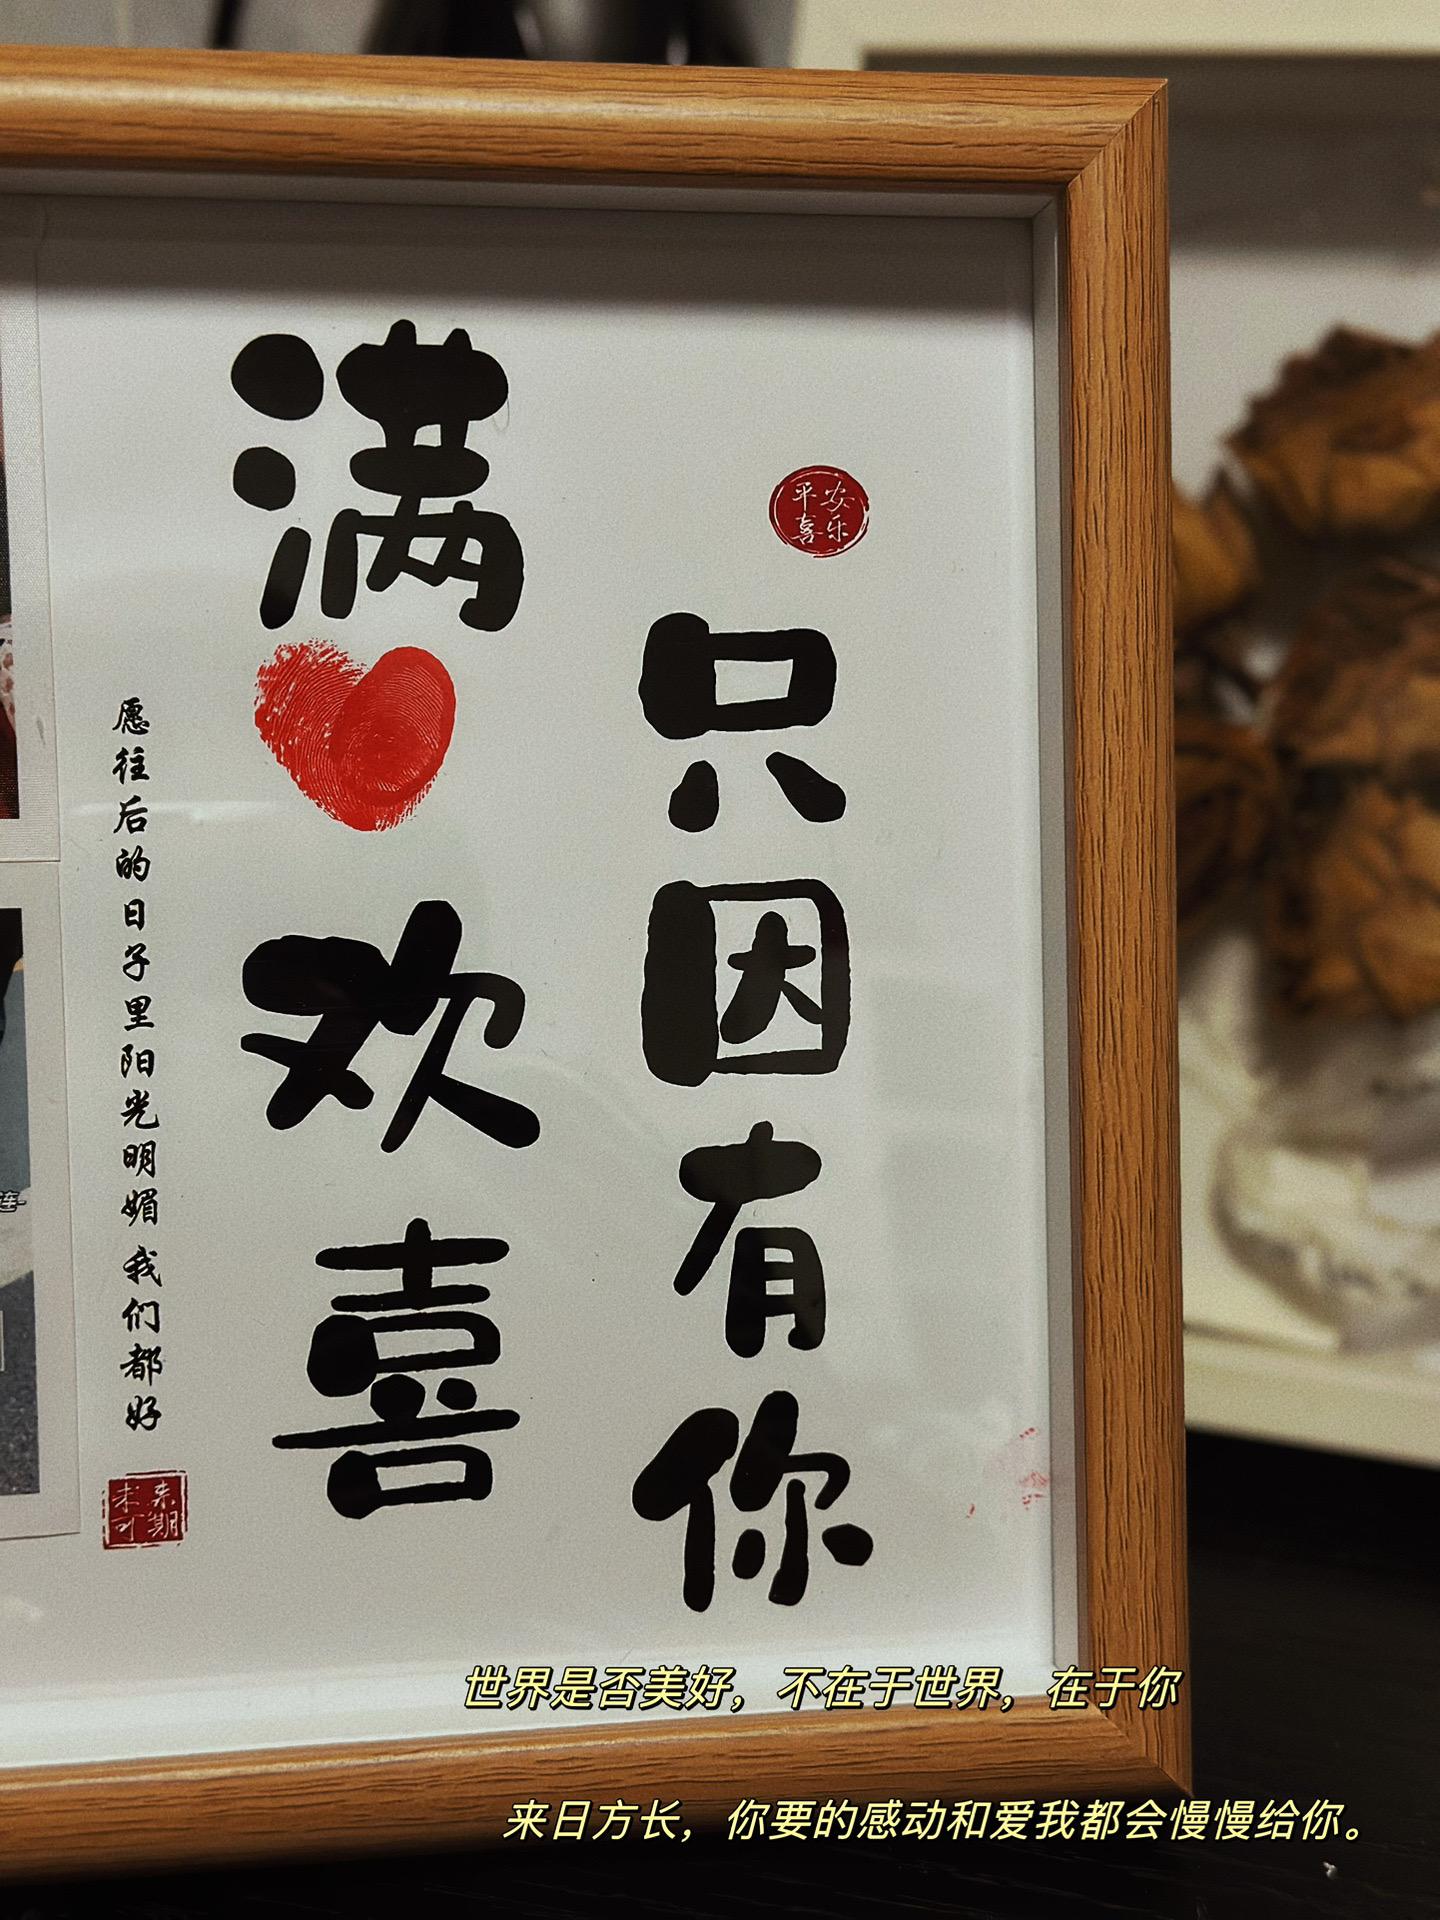 平安
喜乐
只因有你
满欢喜
愿往后的日子里阳光明媚我们都好
未来
可期
连
世界是否美好，不在于世界，在于你
来日方长，你要的感动和爱我都会慢慢给你。